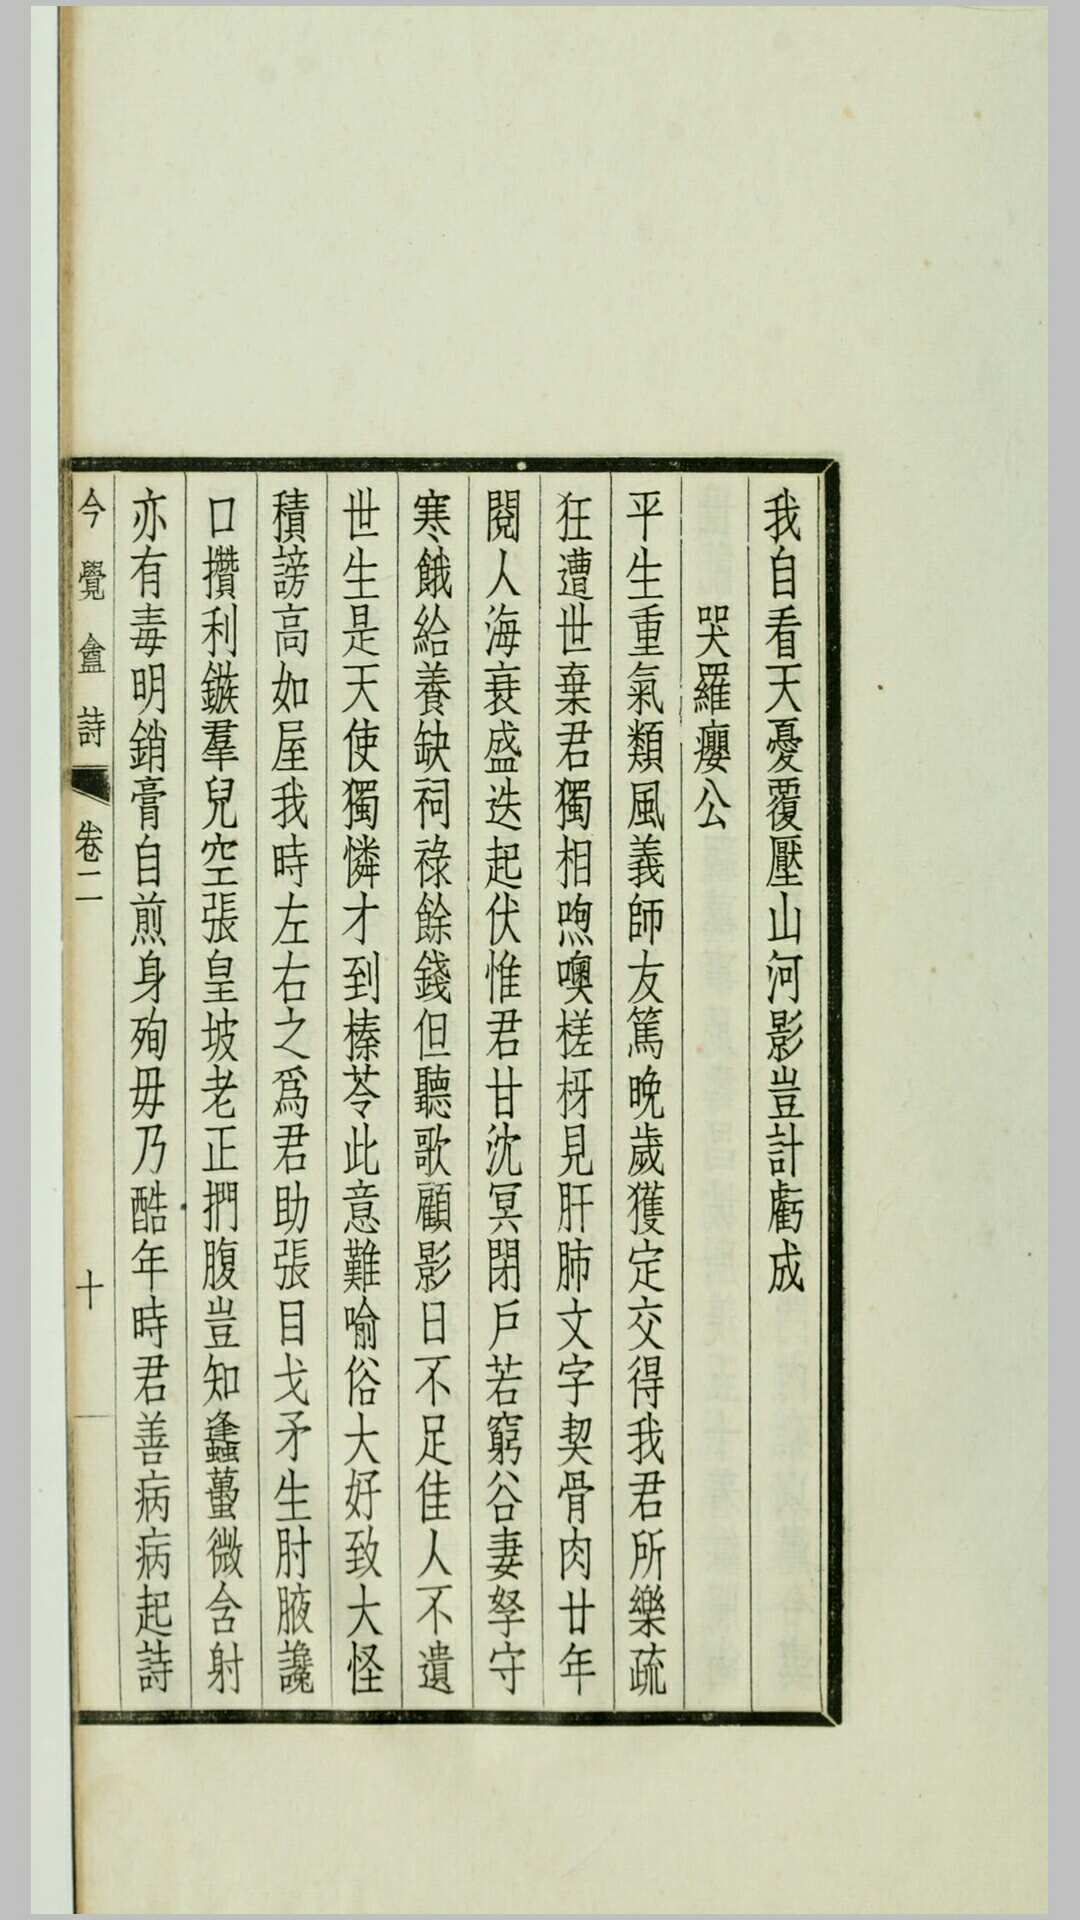 我自看天憂覆壓山河影豈計虧成
哭羅癭公
平生重氣類風義師友篤晚歲獲定交得我君所樂疏
狂遭世棄君獨相喣噢槎枒見肝肺文字契骨肉廿年
閱人海衰盛迭起伏惟君甘沈冥閉戶若窮谷妻孥守
寒餓給養缺祠祿餘錢但聽歌顧影日不足佳人不遺
世生是天使獨憐才到榛苓此意難喻俗大好致大怪
積謗高如屋我時左右之爲君助張目戈矛生肘腋讒
口攢利鏃羣兒空張皇坡老正捫腹豈知蠭蠆微含射
亦有毒明銷膏自煎身殉毋乃酷年時君善病病起詩
今覺盦詩 卷二 十